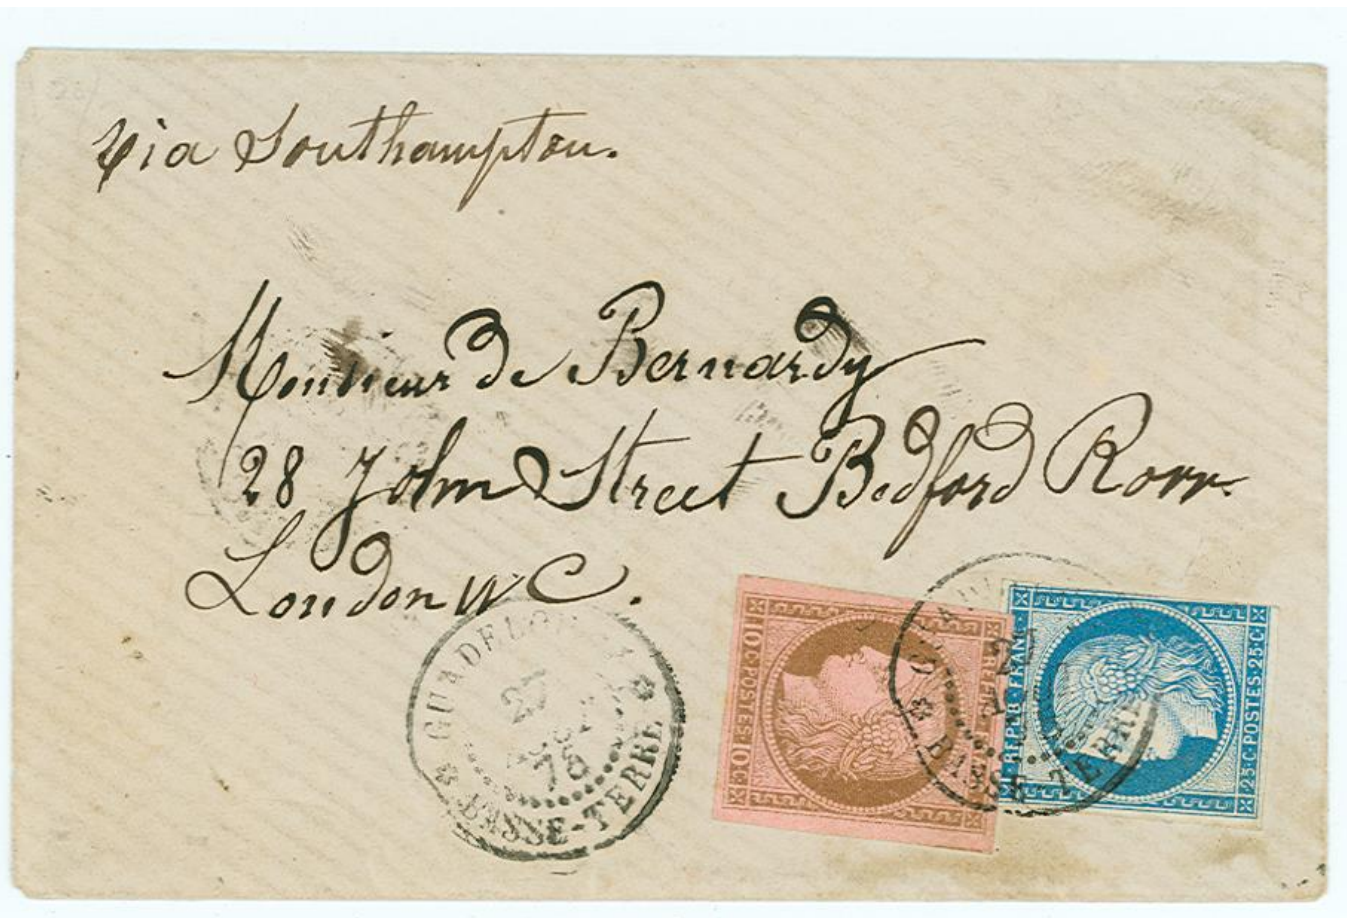 via Southampton.
Monsieur de Bernardy
28 John Street Bedford Row
London WC.
GUADELOUPE
27
AOUT
75
BASSE-TERRE
10·C·POSTES·10·C
REPUB·FRANC·
25·C·POSTES·25·C
27
BASSE-TERRE